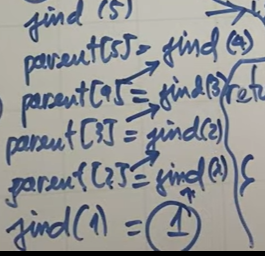 find (5)
parent[5] = find (4)
parent[4] = find(3)
parent[3] = find(2)
parent[2] = find(1)
find(1) = 1